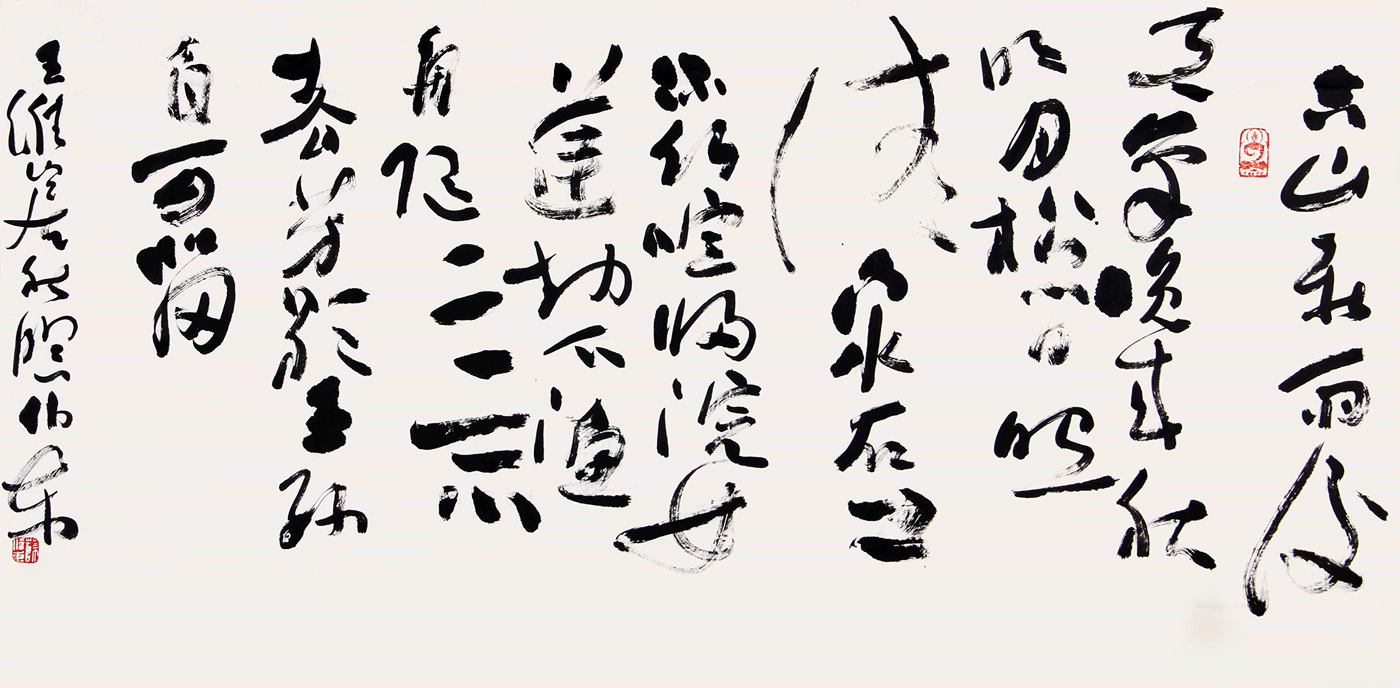 空山新雨後
天氣晚来秋
明月松间照
清泉石上
流竹喧歸浣女
蓮动下漁
舟随意
春芳歇王孙
自可留
王維山居秋暝伯东